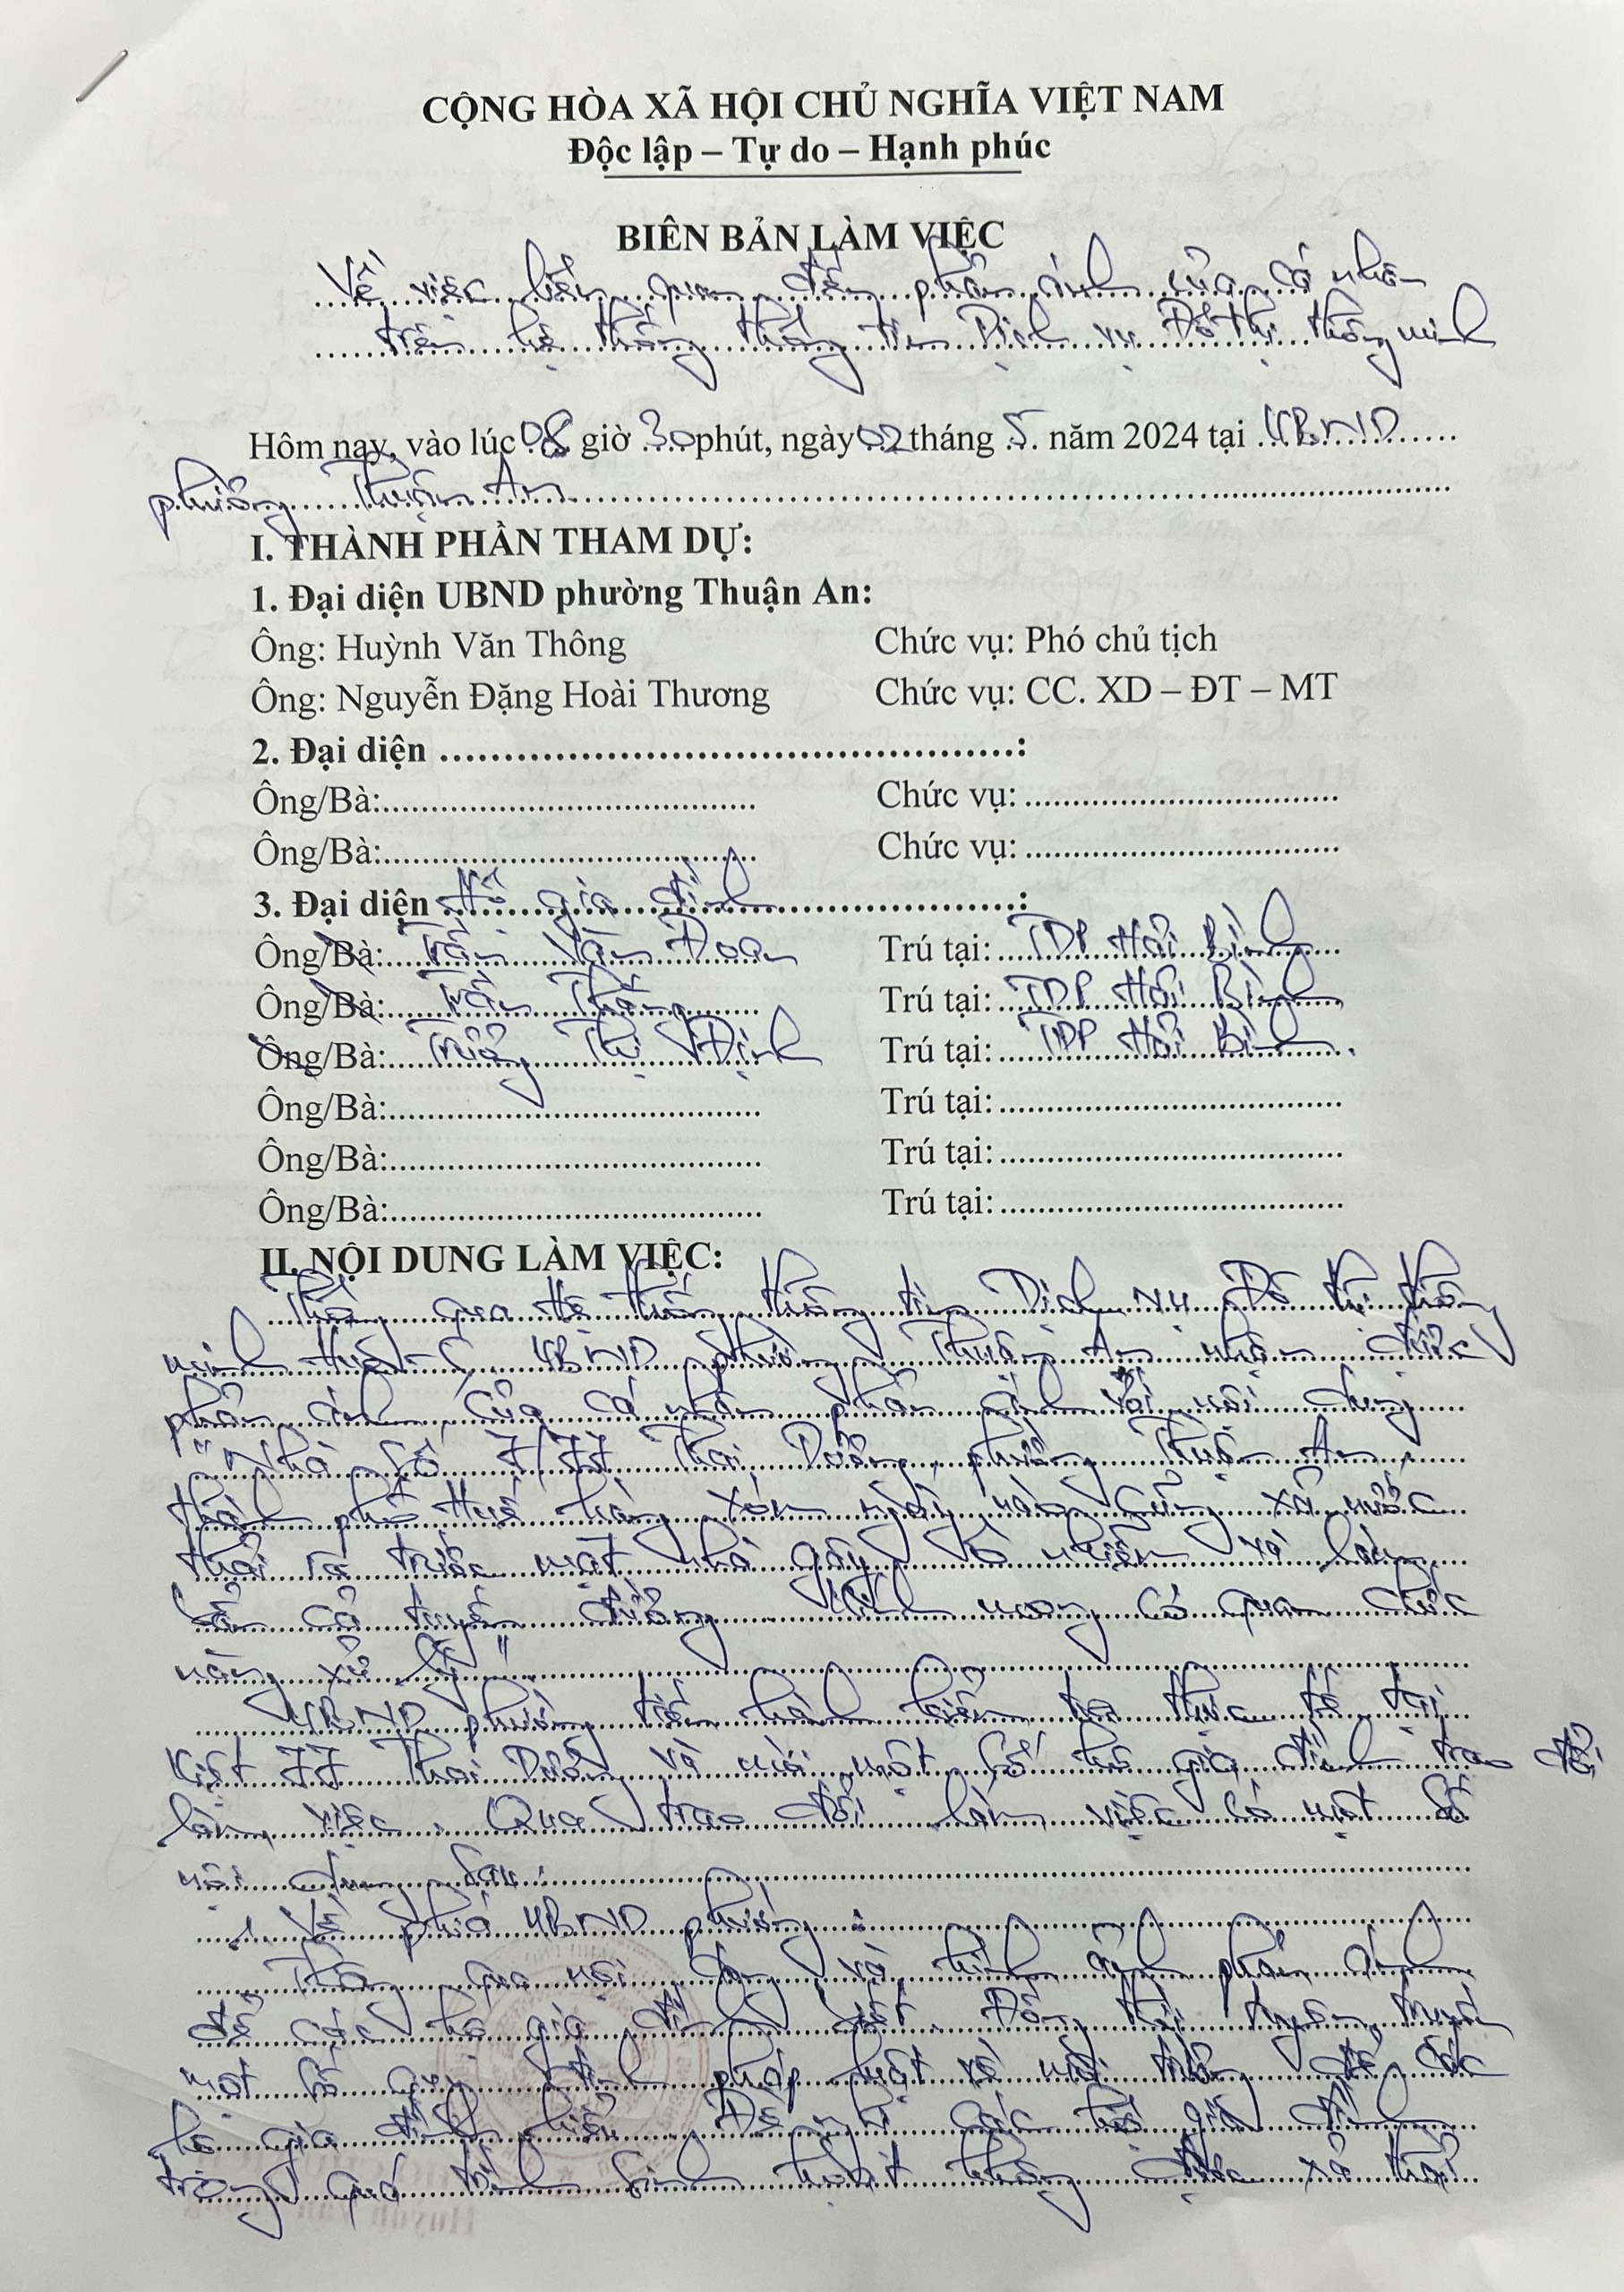 CỘNG HÒA XÃ HỘI CHỦ NGHĨA VIỆT NAM
Độc lập – Tự do – Hạnh phúc
BIÊN BẢN LÀM VIỆC
Về việc liên quan đến phản ánh của cá nhân
trên hệ thống thông tin Dịch vụ Đô thị thông minh
Hôm nay, vào lúc 08 giờ 30 phút, ngày 02 tháng 5 năm 2024 tại UBND
phường Thuận An
I. THÀNH PHẦN THAM DỰ:
1. Đại diện UBND phường Thuận An:
Ông: Huỳnh Văn Thông Chức vụ: Phó chủ tịch
Ông: Nguyễn Đặng Hoài Thương Chức vụ: CC. XD – ĐT – MT
2. Đại diện ......:
Ông/Bà:...... Chức vụ: ......
Ông/Bà:...... Chức vụ: ......
3. Đại diện Hộ gia đình:
Ông/Bà: Trần Văn Đoan Trú tại: TDP Hải Bình
Ông/Bà: Trần Thắng Trú tại: TDP Hải Bình
Ông/Bà: Trương Thị Định Trú tại: TDP Hải Bình.
Ông/Bà:...... Trú tại:......
Ông/Bà:...... Trú tại:......
Ông/Bà:...... Trú tại:......
II. NỘI DUNG LÀM VIỆC:
Thông qua Hệ thống thông tin Dịch vụ Đô thị thông
minh Hue-S, UBND phường Thuận An nhận được
phản ánh của cá nhân phản ánh với nội dung
"Nhà số 7/77 Thai Dương, phường Thuận An,
thành phố Huế hàng xóm ngày nào cũng xả nước
thải ra trước mặt nhà gây ô nhiễm và làm
bẩn cả tuyến đường. Kính mong cơ quan chức
năng xử lý"
UBND phường tiến hành kiểm tra thực tế tại
kiệt 77 Thai Dương và mời một số hộ gia đình trao đổi
làm việc. Qua trao đổi làm việc có một số
nội dung sau:
1. Về phía UBND phường:
Thông qua nội dung và hình ảnh phản ánh
để các hộ gia đình biết. Đồng thời tuyên truyền
một số quy định pháp luật về môi trường để các
hộ gia đình hiểu. Đề nghị các hộ gia đình
trong quá trình sinh hoạt không được xả thải